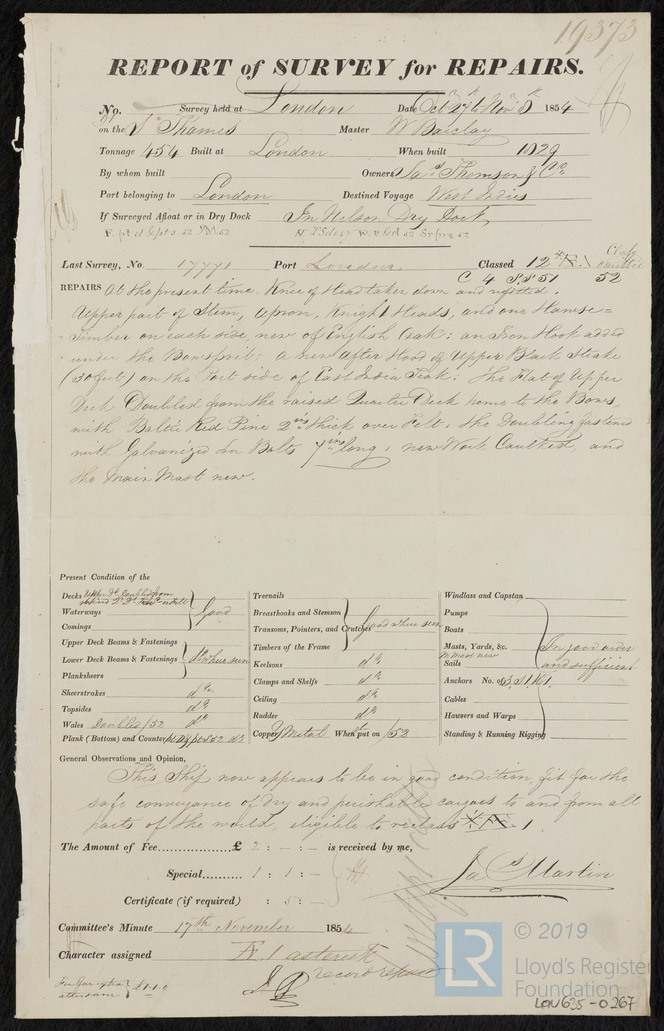 19373
REPORT of SURVEY for REPAIRS.
No. Survey held at London Date Oct 27 to Nov 8th 1854
on the Sr Thames Master W Barclay
Tonnage 454 Built at London When built 1829
By whom built Owners Jas Thomson & Co
Port belonging to London Destined Voyage West Indies
If Surveyed Afloat or in Dry Dock In Nelson Dry Dock
Last Survey, No. 17771 Port London Classed 12
C 4 S.S 51 52
REPAIRS At the present time. Knee of Head taken down and refitted.
Upper part of Stem, Apron, Knight Heads, and one Hawse=
timber on each side, new of English Oak: an Iron Hook added
under the Bowsprit: a new after Hood of Upper Black Strake
(30 feet) on the Port side of East India Teak: The Flat of Upper
Deck Doubled from the raised Quarter Deck home to the Bows,
with Baltic Red Pine 2 ins thick over Felt, the Doubling fastened
with Galvanized Iron Bolts 7 ins long, new Work Caulked, and
the Main Mast new.
Present Condition of the
Decks Upper Dk Doubled from
Waterways Good
Comings
Upper Deck Beams & Fastenings
Lower Deck Beams & Fastenings do where seen
Planksheers
Sheerstrakes do
Topsides do
Wales Doubled/52 do
Plank (Bottom) and Counter
Treenails
Breasthooks and Stemson
Transoms, Pointers, and Crutches Good where seen
Timbers of the Frame
Keelsons do
Clamps and Shelfs do
Ceiling do
Rudder do
Copper Y Metal When put on /52
Windlass and Capstan
Pumps
Boats
Masts, Yards, &c. In good order
M Mast new
Sails and sufficient
Anchors No. of 3 B. 1 S. 1 K.
Cables
Hawsers and Warps
Standing & Running Rigging
General Observations and Opinion,
This Ship now appears to be in good condition, fit for the
safe conveyance of dry and perishable cargoes to and from all
parts of the world, eligible to reclass 1.
The Amount of Fee £ 2 : - : - is received by me,
Special 1 : 1 : -
Jas Martin
Certificate (if required) : 5 : -
Committee's Minute 17th November 1854
Character assigned Æ 1 asterisk
record repairs
For Gen extra attendance } £1.1.0
LR
© 2019
Lloyd's Register
Foundation
LON635-0267